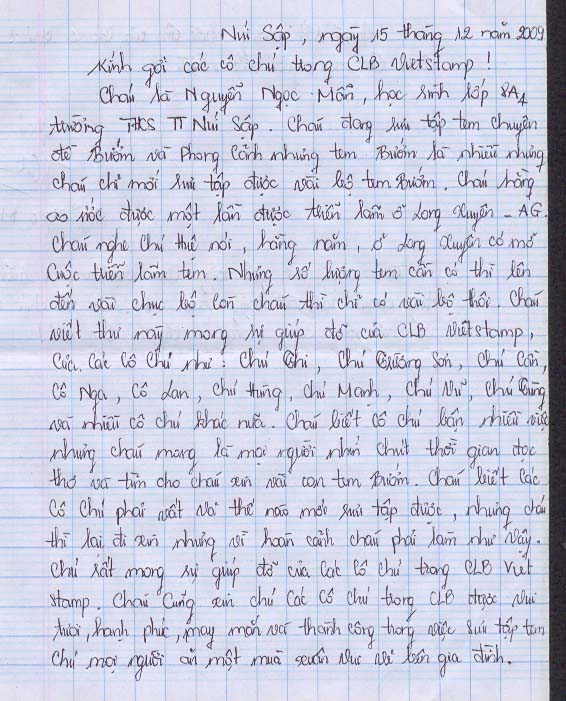 Núi Sập, ngày 15 tháng 12 năm 2009
Kính gởi các cô chú trong CLB Vietstamp !
Cháu là Nguyễn Ngọc Mẫn, học sinh lớp 8A4
trường THCS TT Núi Sập. Cháu đang sưu tập tem chuyên
đề Bướm và Phong Cảnh nhưng tem Bướm là nhiều nhưng
cháu chỉ mới sưu tập được vài bộ tem Bướm. Cháu hằng
ao ước được một lần được triển lãm ở Long Xuyên - AG.
Cháu nghe chú thế nói, hằng năm, ở Long Xuyên có mở
Cuộc triển lãm tem. Nhưng số lượng tem cần có thì lên
đến vài chục bộ còn cháu thì chỉ có vài bộ thôi. Cháu
viết thư này mong sự giúp đỡ của CLB Vietstamp,
Của Các Cô Chú như : Chú Chi, Chú Trường Sơn, Chú Cần,
Cô Nga, Cô Lan, chú Hưng, chú Mạnh, Chú Vũ, Chú Dũng
và nhiều cô chú khác nữa. Cháu biết cô chú bận nhiều việc
nhưng cháu mong là mọi người nhín chút thời gian đọc
thơ và tìm cho cháu xin vài con tem Bướm. Cháu biết Các
Cô Chú phải vất vả thế nào mới sưu tập được, nhưng cháu
thì lại đi xin nhưng vì hoàn cảnh cháu phải làm như vậy.
Chú rất mong sự giúp đỡ của Các Cô chú trong CLB Viet
Stamp. Cháu Cũng xin chú Các Cô chú trong CLB được vui
tươi, hạnh phúc, may mắn và thành công trong việc sưu tập tem
Chú mọi người ăn một mùa xuân vui vẻ bên gia đình.